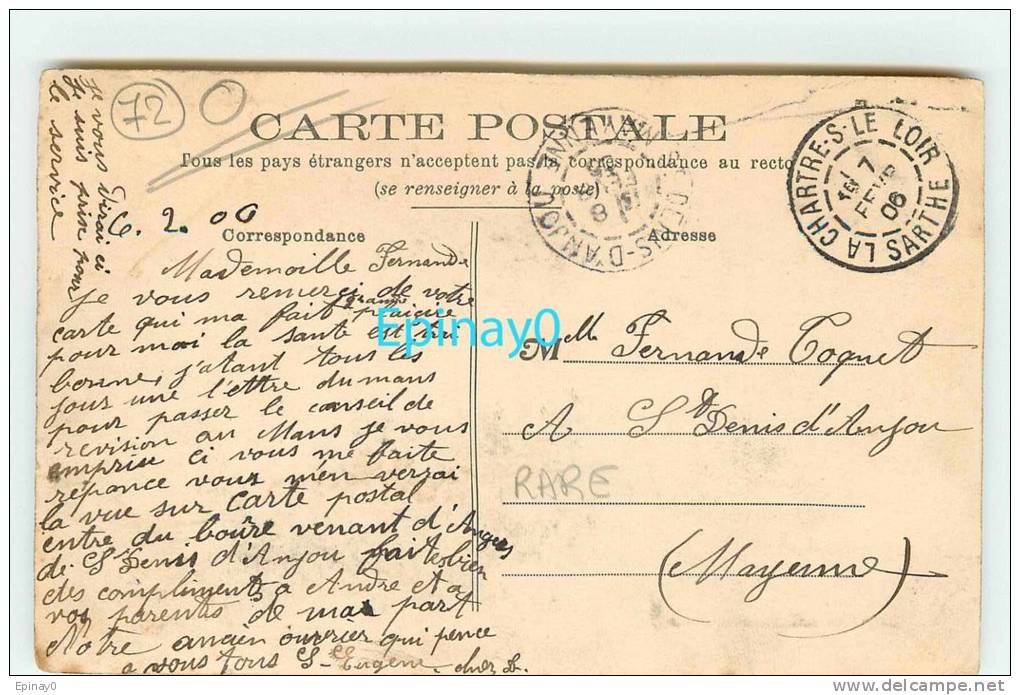 72
CARTE POSTALE
Tous les pays étrangers n'acceptent pas la correspondance au recto
(se renseigner à la poste)
LA CHARTRE-S-LE LOIR
7
FEVR
06
SARTHE
ST DENIS-D'ANJOU
8
6. 2. 06
Correspondance
Adresse
Je vous dirai ci
je suis prise pour
le service
Mademoille Fernande
je vous remerci de votre
carte qui ma fait plaicire
pour moi la santé est tré
bonne, j'atant tous les
jour une l'ettre du mans
pour passer le conseil de
revision au Mans je vous
emprie ci vous me faite
réponce vous m'en verrai
la vue sur Carte postal
entré du boure venant d'Angers
de St Denis d'Anjou faite bien
des compliments a Andre et a
vos parents de ma part
Notre ancien ouvrier qui pence
a vous tous S- Eugène. chez
Epinay0
Melle Fernande Toquet
A St Denis d'Anjou
RARE
(Mayenne)
Epinay0
delcampe.net